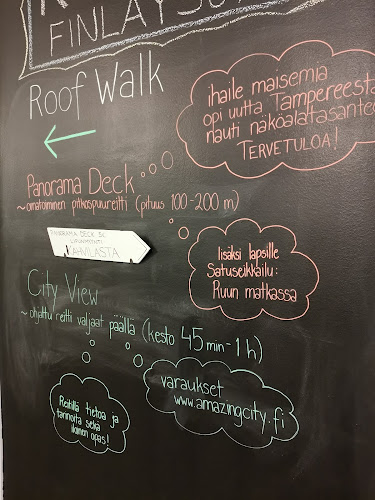 FINLAYSO
Roof Walk
ihaile maisemia
opi uutta Tampereesta
nauti näköalatasanteе
TERVETULOA!
Panorama Deck
~omatoiminen pitkospuureitti (pituus 100-200 m)
PANORAMA DECK
LIPUNMYYNTI
KAHVILASTA
lisäksi lapsille
Satuseikkailu:
Ruun matkassa
City View
~ohjattu reitti valjaat päällä (kesto 45min-1h)
varaukset
www.amazingcity.fi
Reitillä tietoa ja
tarinoita sekä
iloinen opas!